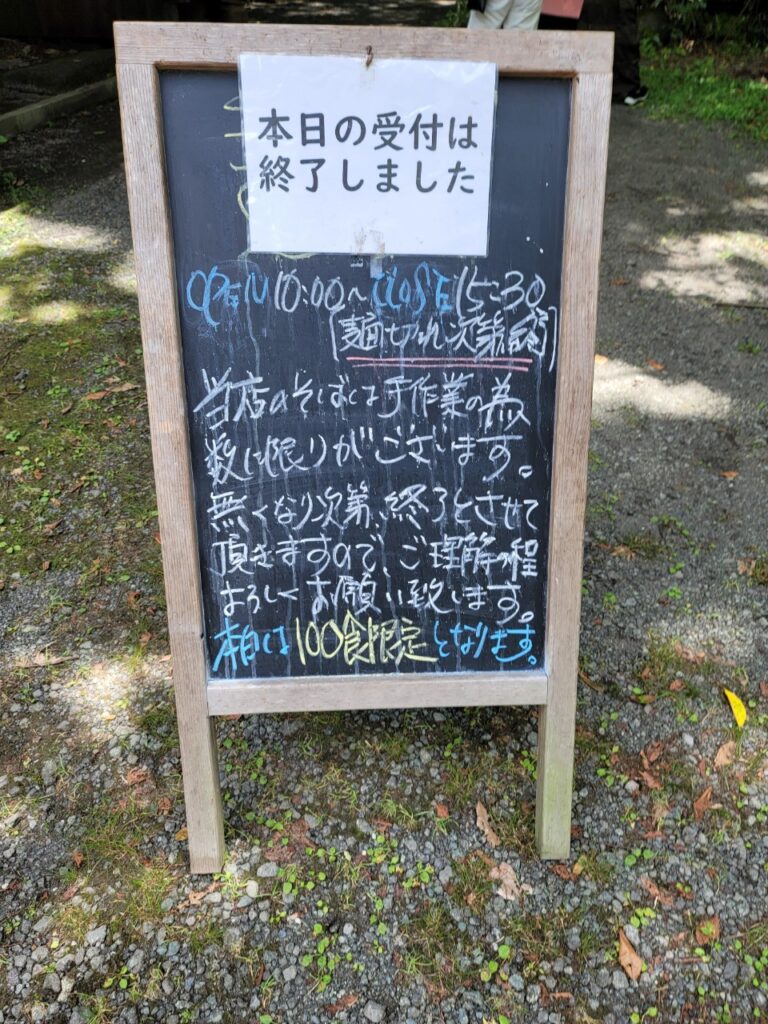 本日の受付は
終了しました
OPEN 10:00~CLOSE 15:30
[麺切れ次第終了]
当店のそばは手作業の為
数に限りがございます。
無くなり次第、終了とさせて
頂きますので、ご理解の程
よろしくお願い致します。
本日は100食限定となります。